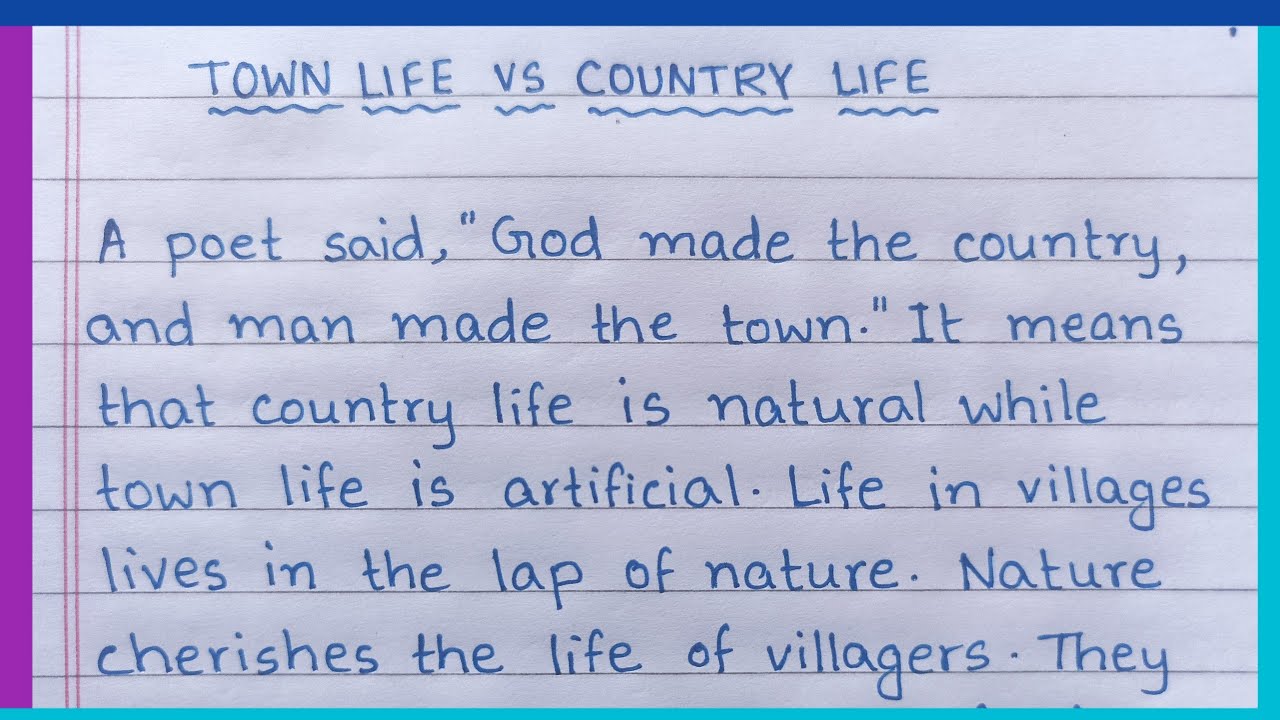 TOWN LIFE VS COUNTRY LIFE
A poet said, "God made the country,
and man made the town." It means
that country life is natural while
town life is artificial. Life in villages
lives in the lap of nature. Nature
cherishes the life of villagers. They